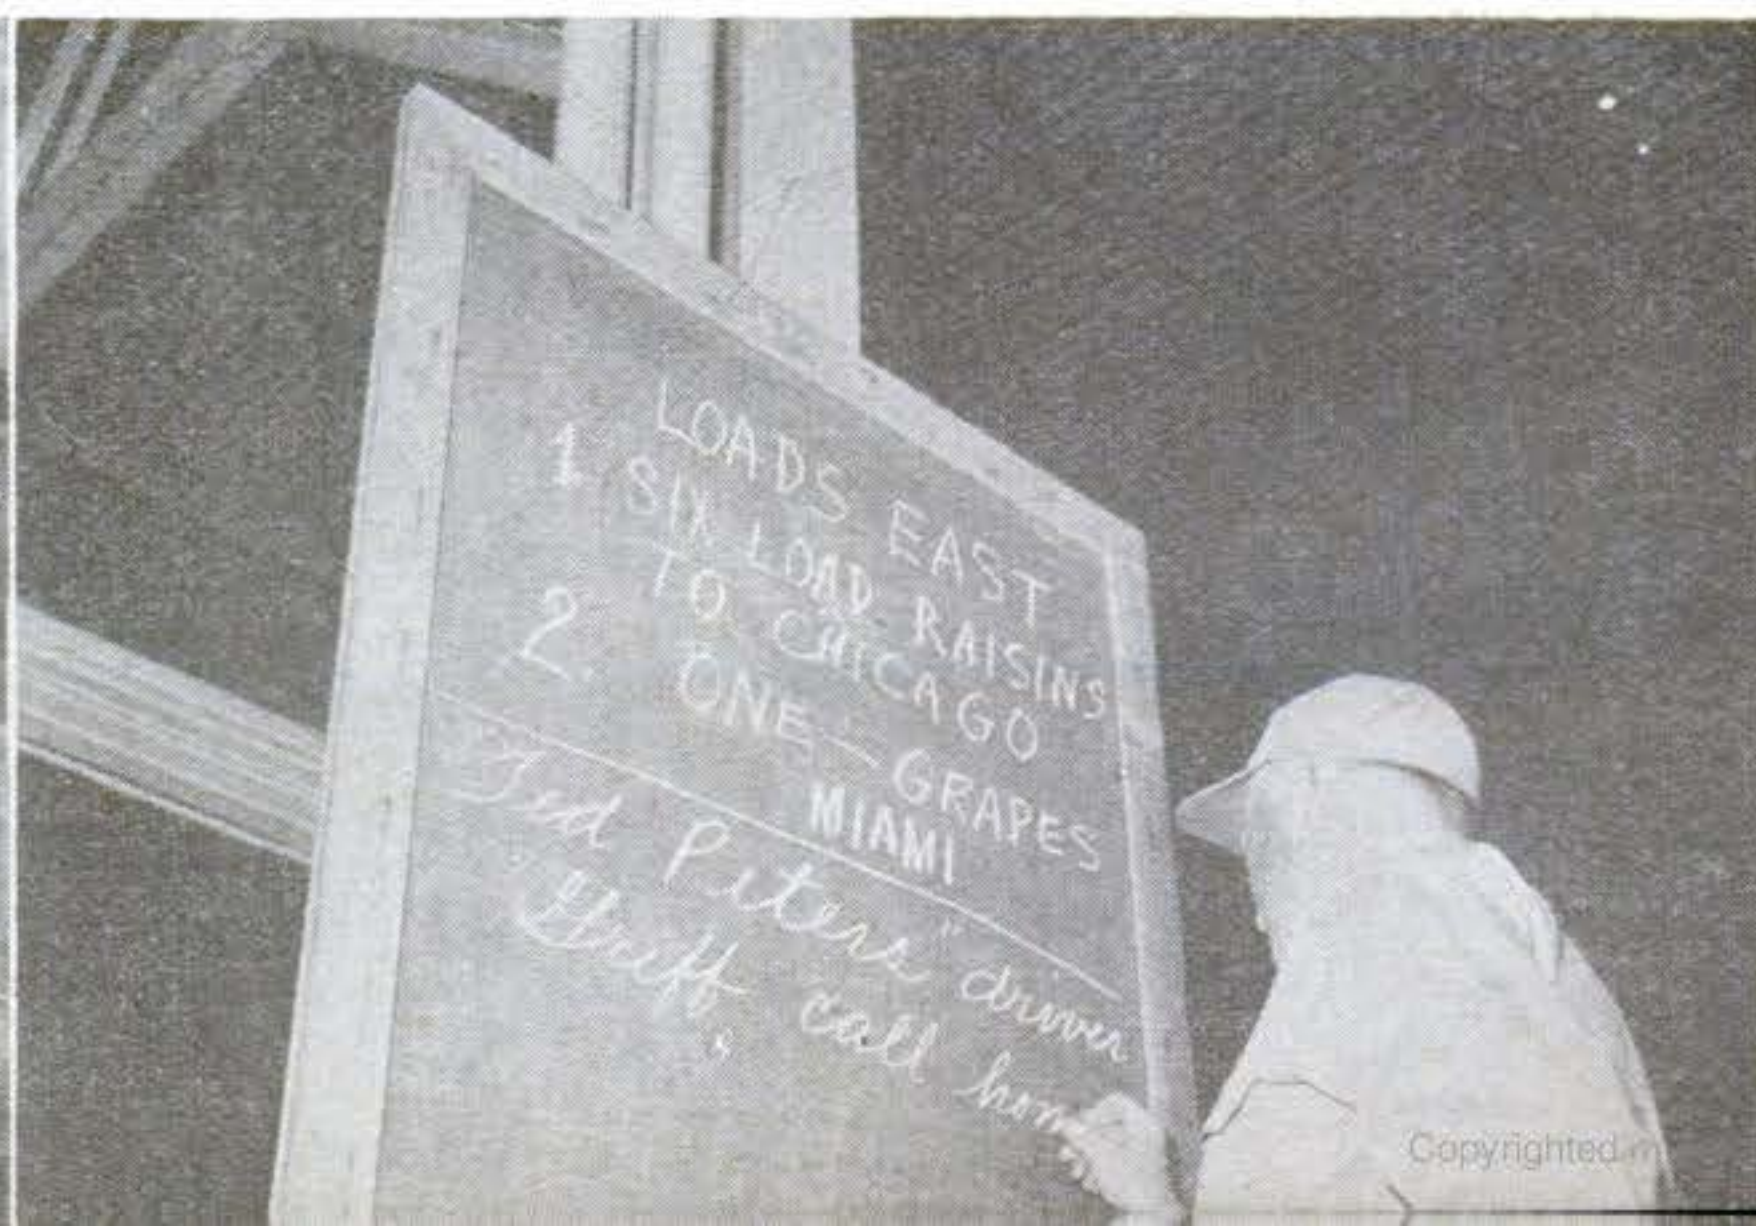 LOADS EAST
1 SIX LOAD RAISINS
TO CHICAGO
2. ONE — GRAPES
MIAMI
Peters driver
call hom
Copyrighted